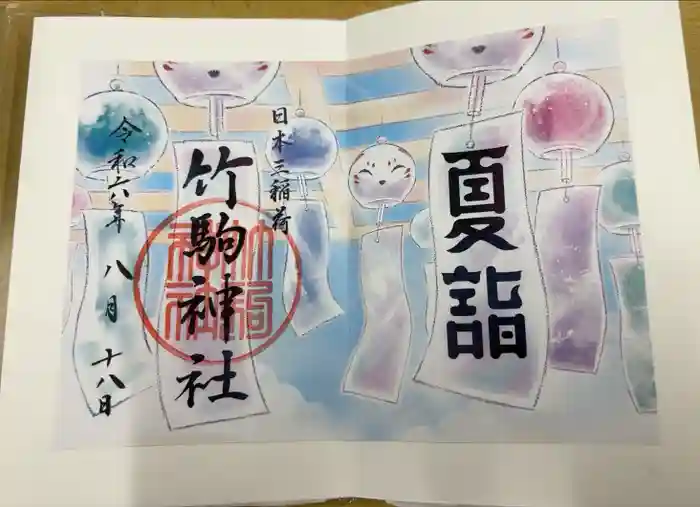 夏詣
日本三稲荷
竹駒神社
令和六年 八月 十八日
竹駒神社